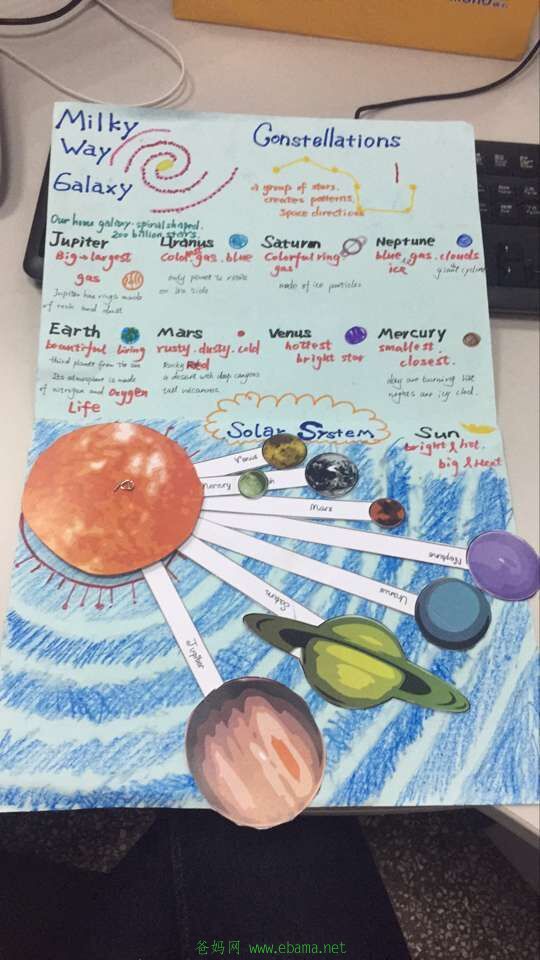 Milky
Way
Galaxy
Constellations
A group of stars.
creates patterns.
Space directions
Our home galaxy. spiral shaped.
200 billion stars.
Jupiter
Big → largest
gas
Jupiter has rings made
of rock and dust
Uranus
Color gas. blue
only planet to rotate
on its side
Saturn
Colorful ring
gas
made of ice particles
Neptune
blue, gas. clouds
ice
giant cyclone
Earth
beautiful living
third planet from the sun
Its atmosphere is made
of nitrogen and Oxygen
Life
Mars
rusty. dusty. cold
Rocky Red
a desert with deep canyons
tall volcanoes
Venus
hottest
bright star
Mercury
smallest.
closest.
day are burning hot
nights are icy cold.
Solar System
Sun
bright & hot.
big & Heat
Venus
Mercury
Mars
Neptune
Uranus
Saturn
Jupiter
爸妈网 www.ebama.net